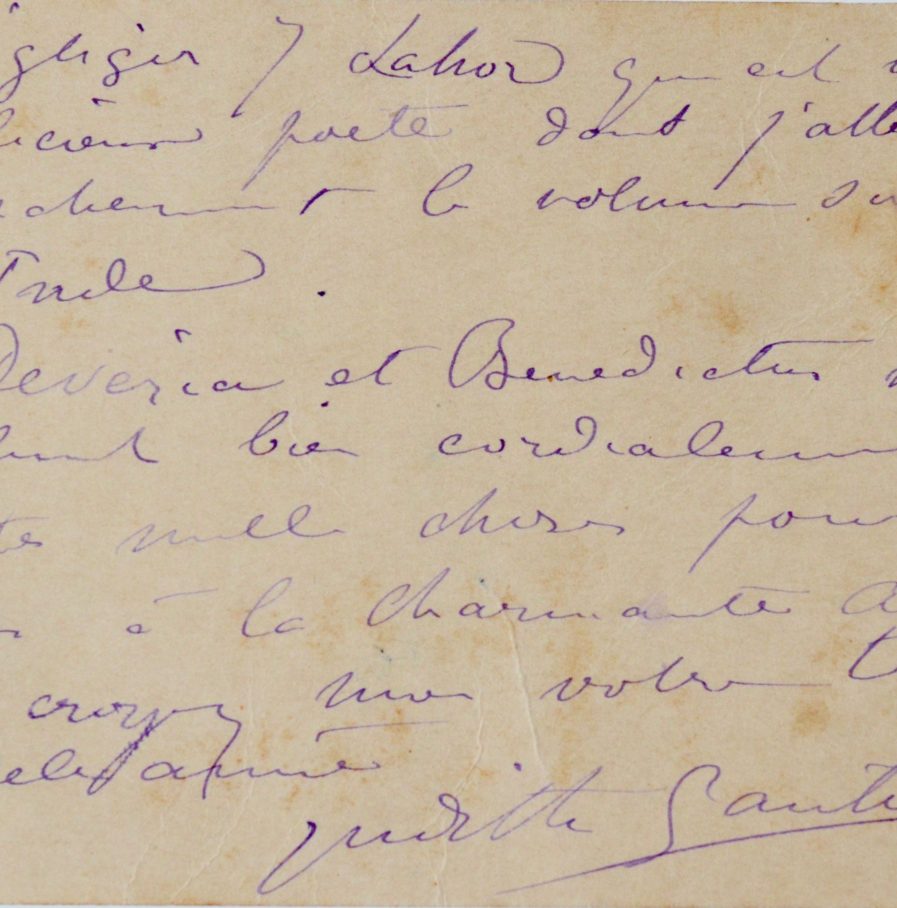 gliger J Lahor qui est
licieux poete dont j'atte
chement le volume su
Inde.
Deveria et Benedictus
luent bien cordialem
tes mille choses pour
à la charmante
croyez moi votre
ele amie
Judith Gauti